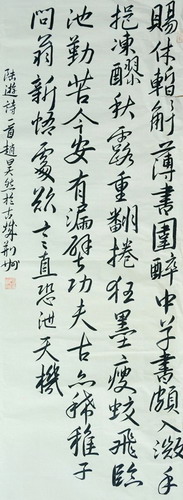 賜休暫解薄書圍醉中草書頗入微手
挹凍醪秋露重翻捲狂墨瘦蛟飛臨
池勤苦今安有漏壁功夫古亦稀稚子
問翁新悟處欲言直恐泄天機
陸遊詩一首趙昊然於古城荊州